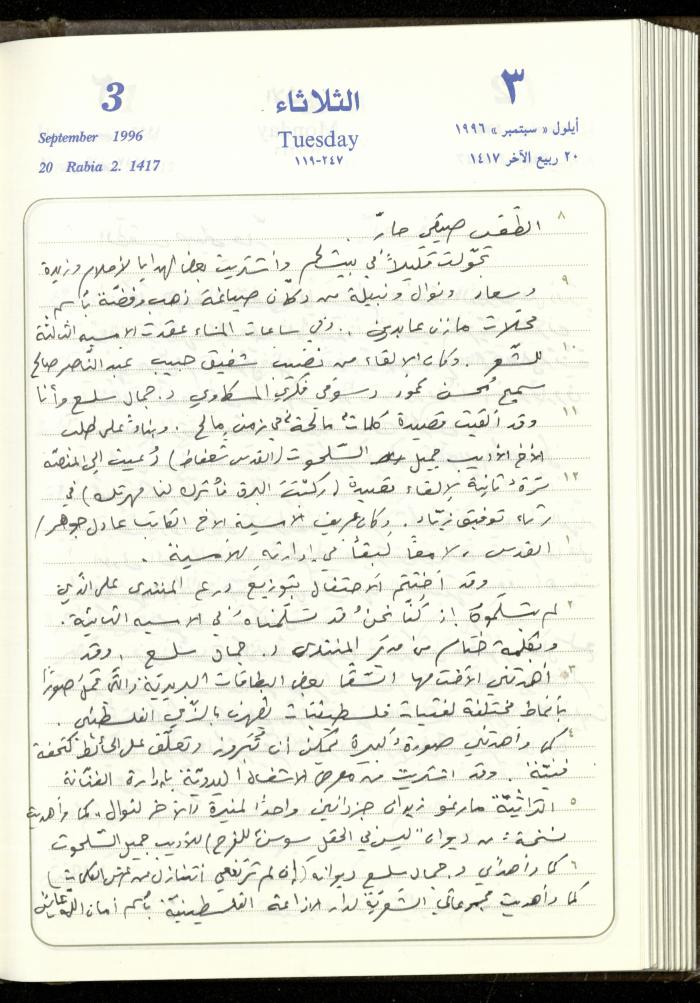 3
September 1996
20 Rabia 2. 1417
الثلاثاء
Tuesday
٢٤٧-١١٩
٣
أيلول « سبتمبر » ١٩٩٦
٢٠ ربيع الآخر ١٤١٧
٨
الطقس صيفي حارّ.
تجوّلت قليلاً في بيت لحم واشتريت بعض الهدايا لأحلام وزبيدة
٩
وسعاد ونوال ونبيلة من دكان صياغة ذهب وفضّة بأسم
محلات مازن عابدين. وفي ساعات المساء عقدت الامسية الثالثة
١٠
للشّعر. وكان الإلقاء من نصيب شفيق حبيب عبد الناصر صالح
سميح محسن محمود د. جمال سلسع وأنا
١١
وقد ألقيت قصيدة كلمات مالحة في زمن مالح. وبناءً على طلب
الأخ الأديب جميل السلحوت (القدس) دُعيت إلى المنصّة
١٢
مرّة ثانية لإلقاء قصيدة (ركبتَ البرق فأترك لنا مهرتك) في
رثاء توفيق زيّاد. وكان عريف الأمسية الأخ الكاتب عادل
١
القدس في إدارته للأمسية.
وقد اختتم الاحتفال بتوزيع درع المنتدى على الذين
٢
لم يتسلّموه إذ كُنّا نحن قد تسلّمناه في الأمسية الثانية.
وبكلمة ختام من مدير المنتدى د. جمال سلسع. وقد
٣
أهدتني بعض البطاقات البريديّة والتي تحمل صوراً
بأنماط مختلفة لفتيات فلسطينيّات بالزّي الفلسطيني.
٤
كما وأهدتني صورة كبيرة يمكن أن تُبروز وتعلّق على الحائط كتحفة
فنيّة. وقد اشتريت من معرض الأشغال اليدويّة بإدارة الفنّانة
٥
التراثيّة زيدان جزدانين واحداً لمنيرة والآخر لنوال. كما وأهديت
نسخة من ديوان "ليس في الحقل سوسن للفرح" للأديب جميل السلحوت
٦
كما وأهداني د. جمال سلسع ديوانه
كما وأهديت مجموعاتي الشعريّة لدار الإذاعة الفلسطينيّة بأسم